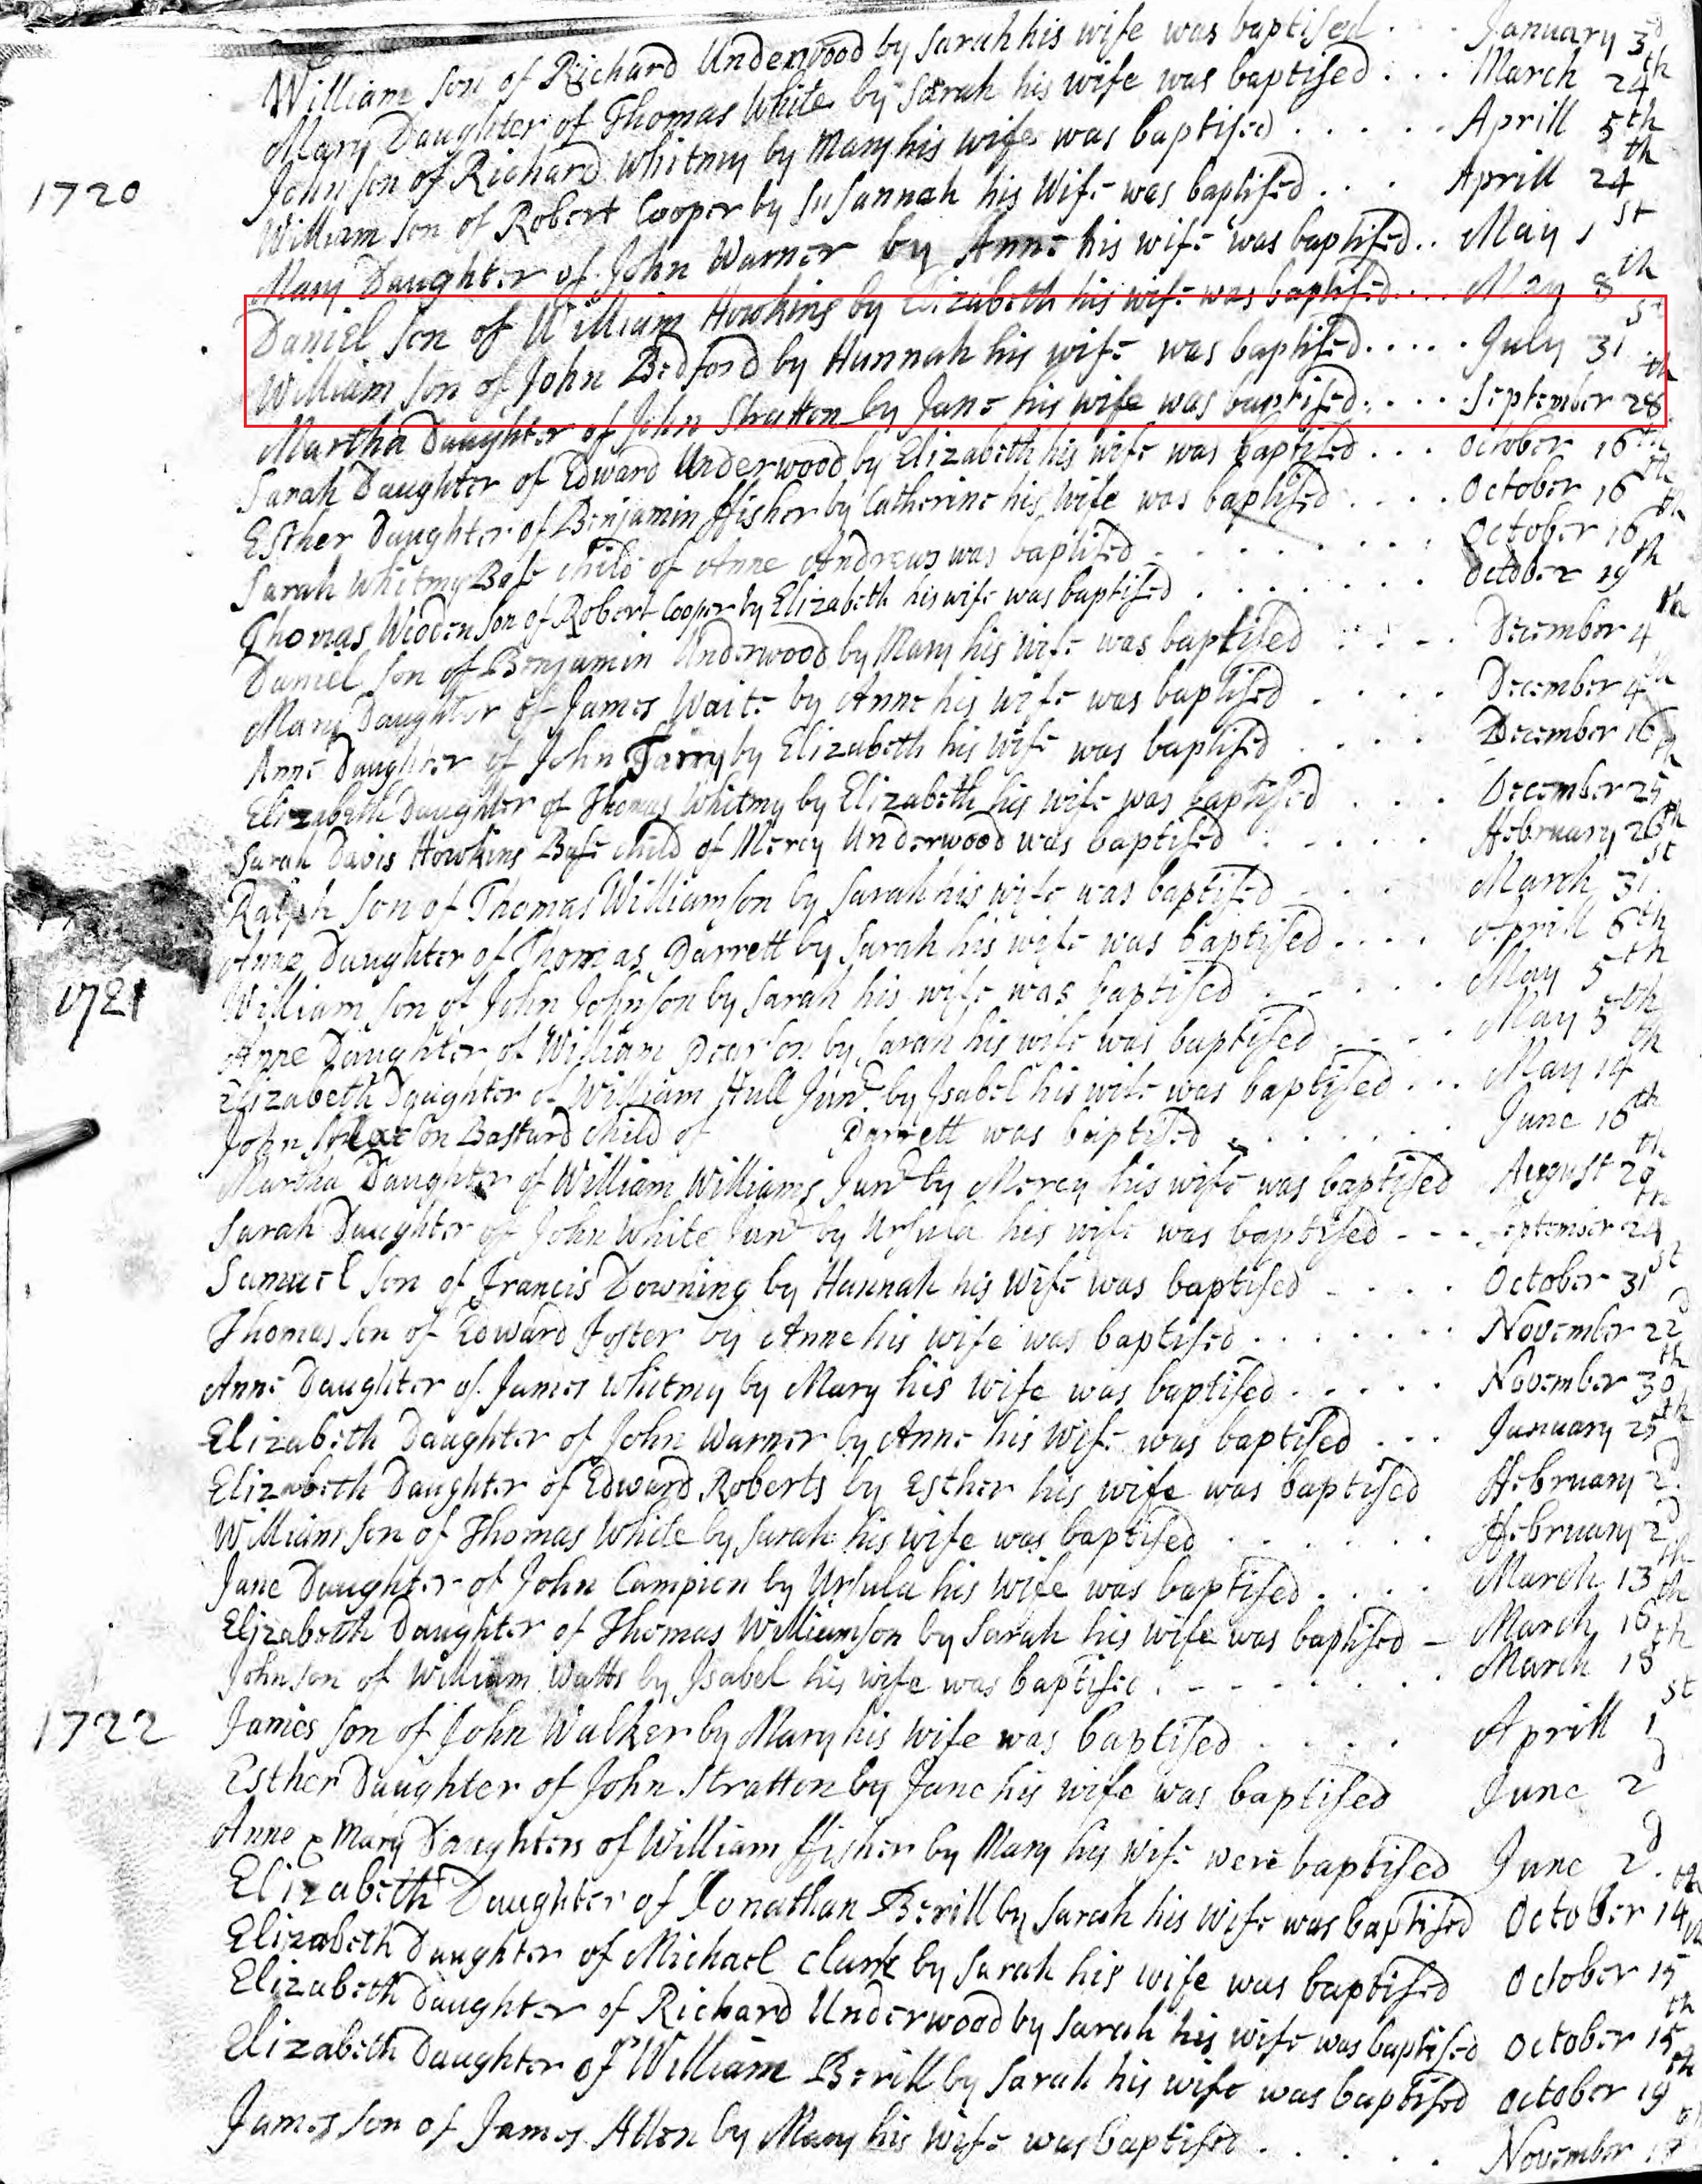 William son of Richard Underwood by Sarah his wife was baptised . . . January 3d
Mary Daughter of Thomas White by Sarah his wife was baptised . . . March 24th
John son of Richard Whitmy by Mary his wife was baptised . . . . . Aprill 5th
1720 William son of Robert Cooper by Susannah his Wife was baptised . . . Aprill 24th
Mary Daughter of John Warner by Anne his wife was baptised . . May 1st
Daniel son of William Howkins by Elizabeth his wife was baptised . . . . May 8th
William son of John Bedford by Hannah his wife was baptised . . . . . July 31st
Martha Daughter of John Stratton by Jane his wife was baptised . . . . September 28th
Sarah Daughter of Edward Underwood by Elizabeth his wife was baptised . . . October 16th
Esther Daughter of Benjamin ffisher by Catherine his Wife was baptised . . . . October 16th
Sarah Whitmy Base child of Anne Andrews was baptised . . . . . . . October 16th
Thomas son of Robert Cooper by Elizabeth his wife was baptised . . . . . . October 19th
Daniel son of Benjamin Underwood by Mary his wife was baptised . . . . December 4th
Mary Daughter of James Waite by Anne his wife was baptised . . . . December 4th
Anne Daughter of John Tarry by Elizabeth his Wife was baptised . . . . December 16th
Elizabeth Daughter of Thomas Whitmy by Elizabeth his wife was baptised . . . December 25th
Sarah Davis Howkins Base child of Mercy Underwood was baptised . . . . . ffebruary 26th
Ralph son of Thomas Williamson by Sarah his wife was baptised . . . March 31st
Anne Daughter of Thomas Darrett by Sarah his wife was baptised . . . . Aprill 6th
1721 William son of John Johnson by Sarah his wife was baptised . . . . . May 5th
Anne Daughter of William Dearson by Sarah his wife was baptised . . . . May 5th
Elizabeth Daughter of William Hull Junr by Isabel his wife was baptised . . . May 14th
John Bastard child of Darrett was baptised . . . . . . June 16th
Martha Daughter of William Williams Junr by Mercy his wife was baptised August 20th
Sarah Daughter of John White Junr by Ursula his wife was baptised - - - September 24th
Samuel son of Francis Downing by Hannah his Wife was baptised . . . . October 31st
Thomas son of Edward Foster by Anne his wife was baptised . . . . . . . November 22d
Anne Daughter of James Whitmy by Mary his wife was baptised . . . . . November 30th
Elizabeth Daughter of John Warner by Anne his Wife was baptised . . . January 25th
Elizabeth Daughter of Edward Roberts by Esther his wife was baptised ffebruary 2d
William son of Thomas White by Sarah his wife was baptised . . . . . . ffebruary 2d
Jane Daughter of John Campion by Ursula his Wife was baptised . . . . March 13th
Elizabeth Daughter of Thomas Williamson by Sarah his Wife was baptised - March 16th
John son of William Watts by Isabel his wife was baptised . - - - . . . March 18th
1722 James son of John Walker by Mary his Wife was baptised . . . . Aprill 1st
Esther Daughter of John Stratton by Jane his wife was baptised June 2d
Anne & Mary Daughters of William ffisher by Mary his Wife were baptised June 2d
Elizabeth Daughter of Jonathan Berill by Sarah his Wife was baptised October 14th
Elizabeth Daughter of Michael Clark by Sarah his wife was baptised October 15th
Elizabeth Daughter of Richard Underwood by Sarah his wife was baptised October 15th
Elizabeth Daughter of William Berill by Sarah his wife was baptised October 19th
James son of James Allen by Mary his Wife was baptised . . . . . November